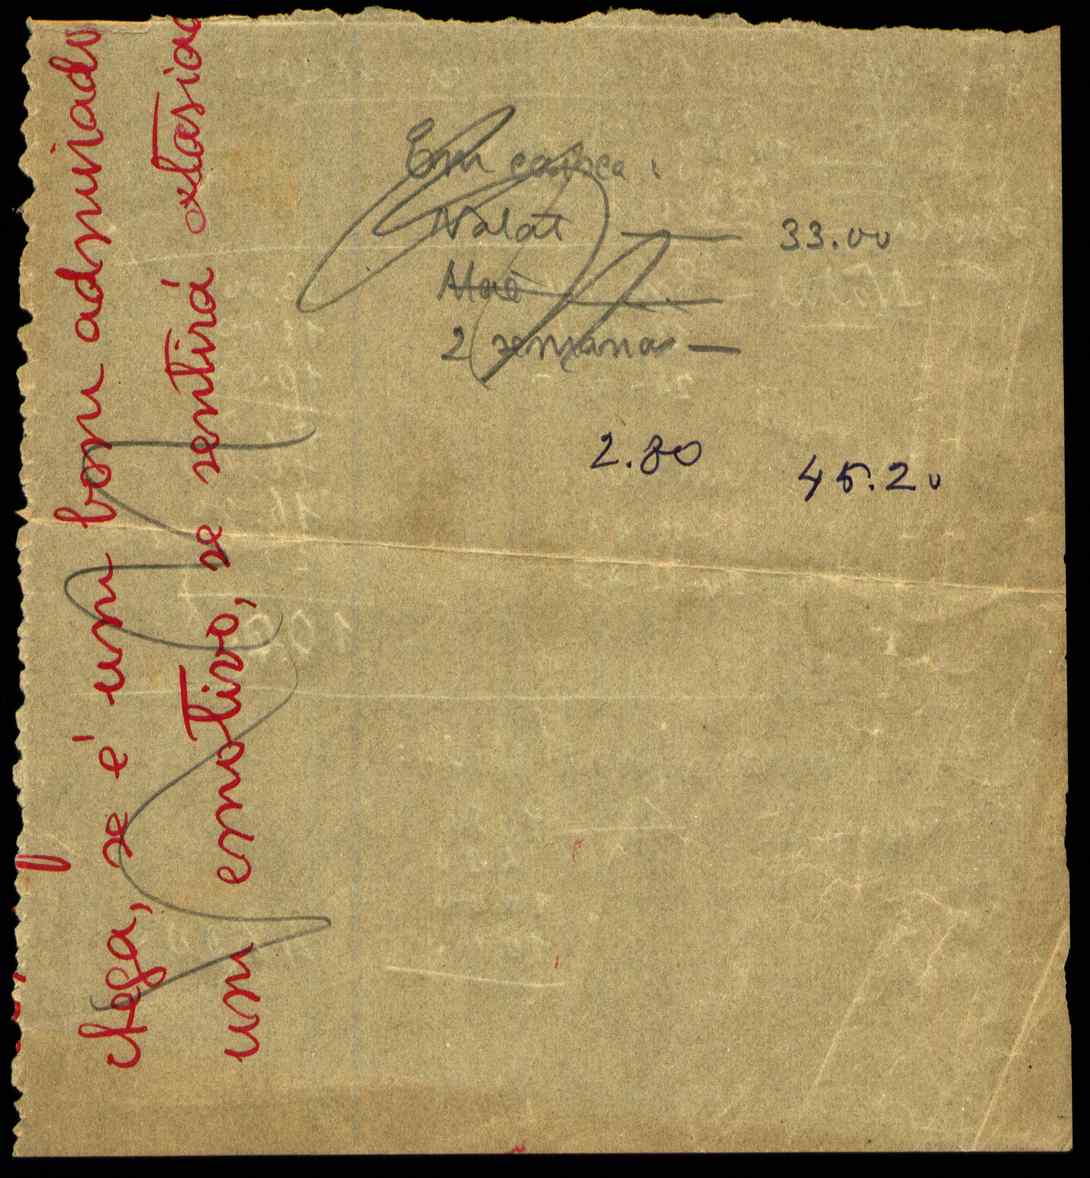 Em carioca:
Natal — 33.00
2 semanas —
2.80 45.20
chega, se é um bom admirado
um emotivo, se sentirá extasiad